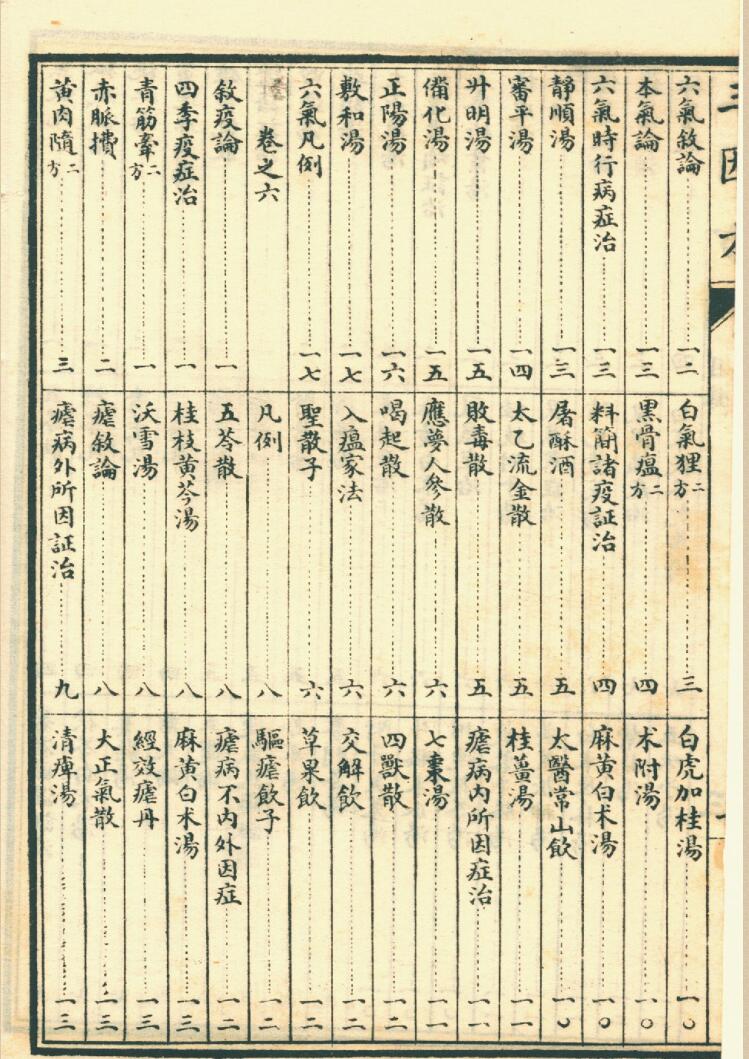 六氣敘論 一二
本氣論 一三
六氣時行病症治 一三
靜順湯 一三
審平湯 一四
升明湯 一五
備化湯 一五
正陽湯 一六
敷和湯 一七
六氣凡例 一七
卷之六
敘疫論 一
四季疫症治 一
青筋牽二方 一
赤脈攢 二
黃肉隨二方 三
白氣狸二方 三
黑骨瘟二方 四
料簡諸疫証治 四
屠酥酒 五
太乙流金散 五
敗毒散 五
應夢人參散 六
喝起散 六
入瘟家法 六
聖散子 六
凡例 八
五苓散 八
桂枝黃芩湯 八
沃雪湯 八
瘧敘論 八
瘧病外所因証治 九
白虎加桂湯 一〇
朮附湯 一〇
麻黃白朮湯 一〇
太醫常山飲 一〇
桂薑湯 一一
瘧病內所因症治 一一
七棗湯 一一
四獸散 一二
交解飲 一二
草果飲 一二
驅瘧飲子 一二
瘧病不內外因症 一二
麻黃白朮湯 一三
經效瘧丹 一三
大正氣散 一三
清痺湯 一三